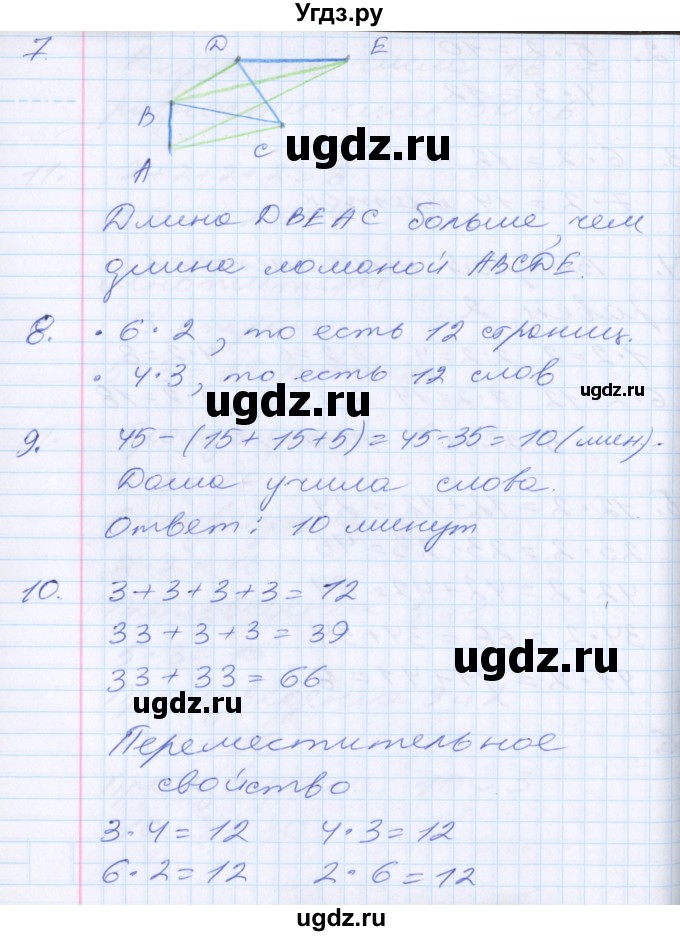 Угдз.ру
7.
D
E
B
C
A
ugdz.ru
Длина DBEAC больше, чем
длина ломаной ABCDE.
8. • 6·2, то есть 12 страниц.
• 4·3, то есть 12 слов
ugdz.ru
ugdz.ru
9. 45-(15+15+5)=45-35=10(мин).
Даша учила слова.
Ответ: 10 минут
ugdz.ru
10. 3+3+3+3=12
33+3+3=39
ugdz.ru
33+33=66
ugdz.ru
Переместительное
свойство
3·4=12 4·3=12
6·2=12 2·6=12
ugdz.ru